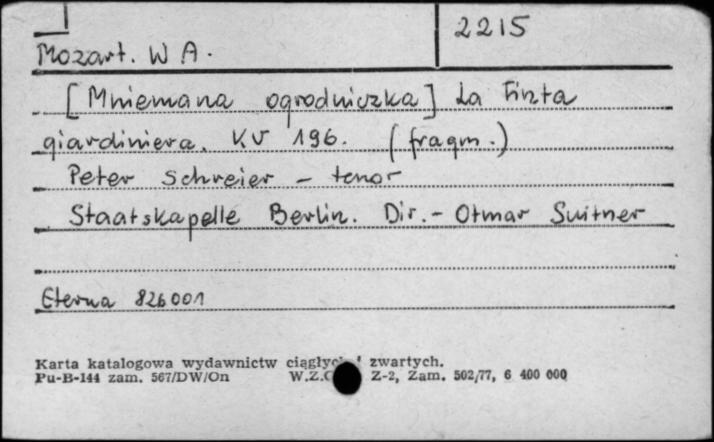 2215
Mozart. W A.
[Mniemana ogrodniczka] La Finta
giardiniera. KV 196. (fragm.)
Peter Schreier - tenor
Staatskapelle Berlin. Dir.- Otmar Suitner
Eterna 826001
Karta katalogowa wydawnictw zwartych.
Pu-B-144 zam. 567/DW/On Z-2, Zam. 502/77, 6 400 000